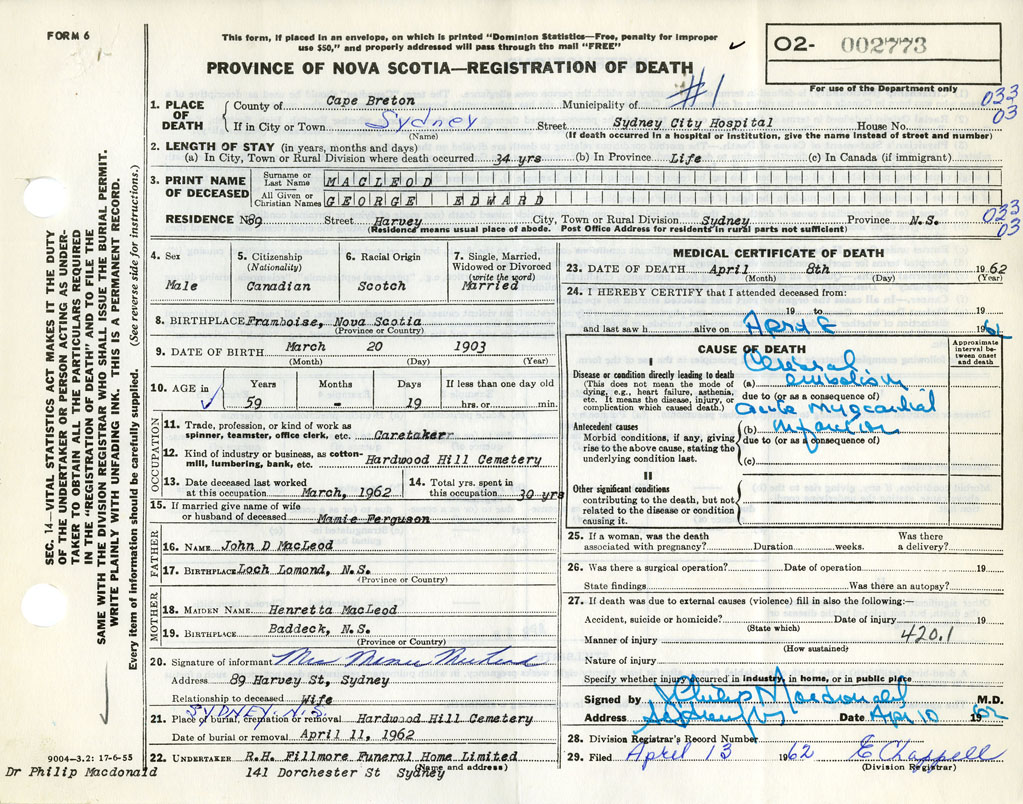 FORM 6
This form, if placed in an envelope, on which is printed "Dominion Statistics—Free, penalty for improper
use $50," and properly addressed will pass through the mail "FREE"
02- 002773
PROVINCE OF NOVA SCOTIA—REGISTRATION OF DEATH
For use of the Department only
#1
033
03
1. PLACE OF DEATH
County of Cape Breton Municipality of
If in City or Town Sydney Street Sydney City Hospital House No.
(Name) (If death occurred in a hospital or institution, give the name instead of street and number)
2. LENGTH OF STAY (in years, months and days)
(a) In City, Town or Rural Division where death occurred 34 yrs (b) In Province Life (c) In Canada (if immigrant)
3. PRINT NAME OF DECEASED
Surname or Last Name MACLEOD
All Given or Christian Names GEORGE EDWARD
RESIDENCE No 89 Street Harvey City, Town or Rural Division Sydney Province N.S.
033
03
(Residence means usual place of abode. Post Office Address for residents in rural parts not sufficient)
4. Sex
Male
5. Citizenship
(Nationality)
Canadian
6. Racial Origin
Scotch
7. Single, Married,
Widowed or Divorced
(write the word)
Married
8. BIRTHPLACE Framboise, Nova Scotia
(Province or Country)
9. DATE OF BIRTH March 20 1903
(Month) (Day) (Year)
10. AGE in
Years Months Days If less than one day old
59 - 19 hrs. or min.
OCCUPATION
11. Trade, profession, or kind of work as
spinner, teamster, office clerk, etc. Caretaker
12. Kind of industry or business, as cotton-
mill, lumbering, bank, etc. Hardwood Hill Cemetery
13. Date deceased last worked
at this occupation March, 1962
14. Total yrs. spent in
this occupation 30 yrs
15. If married give name of wife
or husband of deceased Mamie Ferguson
FATHER
16. NAME John D MacLeod
17. BIRTHPLACE Loch Lomond, N.S.
(Province or Country)
MOTHER
18. MAIDEN NAME Henretta MacLeod
19. BIRTHPLACE Baddeck, N.S.
(Province or Country)
20. Signature of informant Mrs
Address 89 Harvey St, Sydney
Relationship to deceased Wife
SYDNEY N.S.
21. Place of burial, cremation or removal Hardwood Hill Cemetery
Date of burial or removal April 11, 1962
22. UNDERTAKER R.H. Fillmore Funeral Home Limited
(Name and address)
141 Dorchester St Sydney
9004—3.2: 17-6-55
Dr Philip Macdonald
MEDICAL CERTIFICATE OF DEATH
23. DATE OF DEATH April 8th 1962
(Month) (Day) (Year)
24. I HEREBY CERTIFY that I attended deceased from:
19 to 19
and last saw h alive on April 8 1962
CAUSE OF DEATH
Approximate
interval be-
tween onset
and death
I
Disease or condition directly leading to death
(This does not mean the mode of
dying, e.g., heart failure, asthenia,
etc. It means the disease, injury, or
complication which caused death.)
(a) Cerebral embolism
due to (or as a consequence of)
Antecedent causes
Morbid conditions, if any, giving
rise to the above cause, stating the
underlying condition last.
(b) acute myocardial infarction
due to (or as a consequence of)
(c)
II
Other significant conditions
contributing to the death, but not
related to the disease or condition
causing it.
25. If a woman, was the death
associated with pregnancy? Duration weeks.
Was there
a delivery?
26. Was there a surgical operation? Date of operation 19
State findings Was there an autopsy?
27. If death was due to external causes (violence) fill in also the following:—
Accident, suicide or homicide? Date of injury 19
(State which)
420.1
Manner of injury
(How sustained)
Nature of injury
Specify whether injury occurred in industry, in home, or in public place
Signed by Philip Macdonald M.D.
Address Date Apr 10 1962
28. Division Registrar's Record Number
29. Filed April 13 1962 E Chappell
(Division Registrar)
SEC. 14—VITAL STATISTICS ACT MAKES IT THE DUTY
OF THE UNDERTAKER OR PERSON ACTING AS UNDER-
TAKER TO OBTAIN ALL THE PARTICULARS REQUIRED
IN THE "REGISTRATION OF DEATH" AND TO FILE THE
SAME WITH THE DIVISION REGISTRAR WHO SHALL ISSUE THE BURIAL PERMIT.
WRITE PLAINLY WITH UNFADING INK. THIS IS A PERMANENT RECORD.
Every item of information should be carefully supplied. (See reverse side for instructions.)